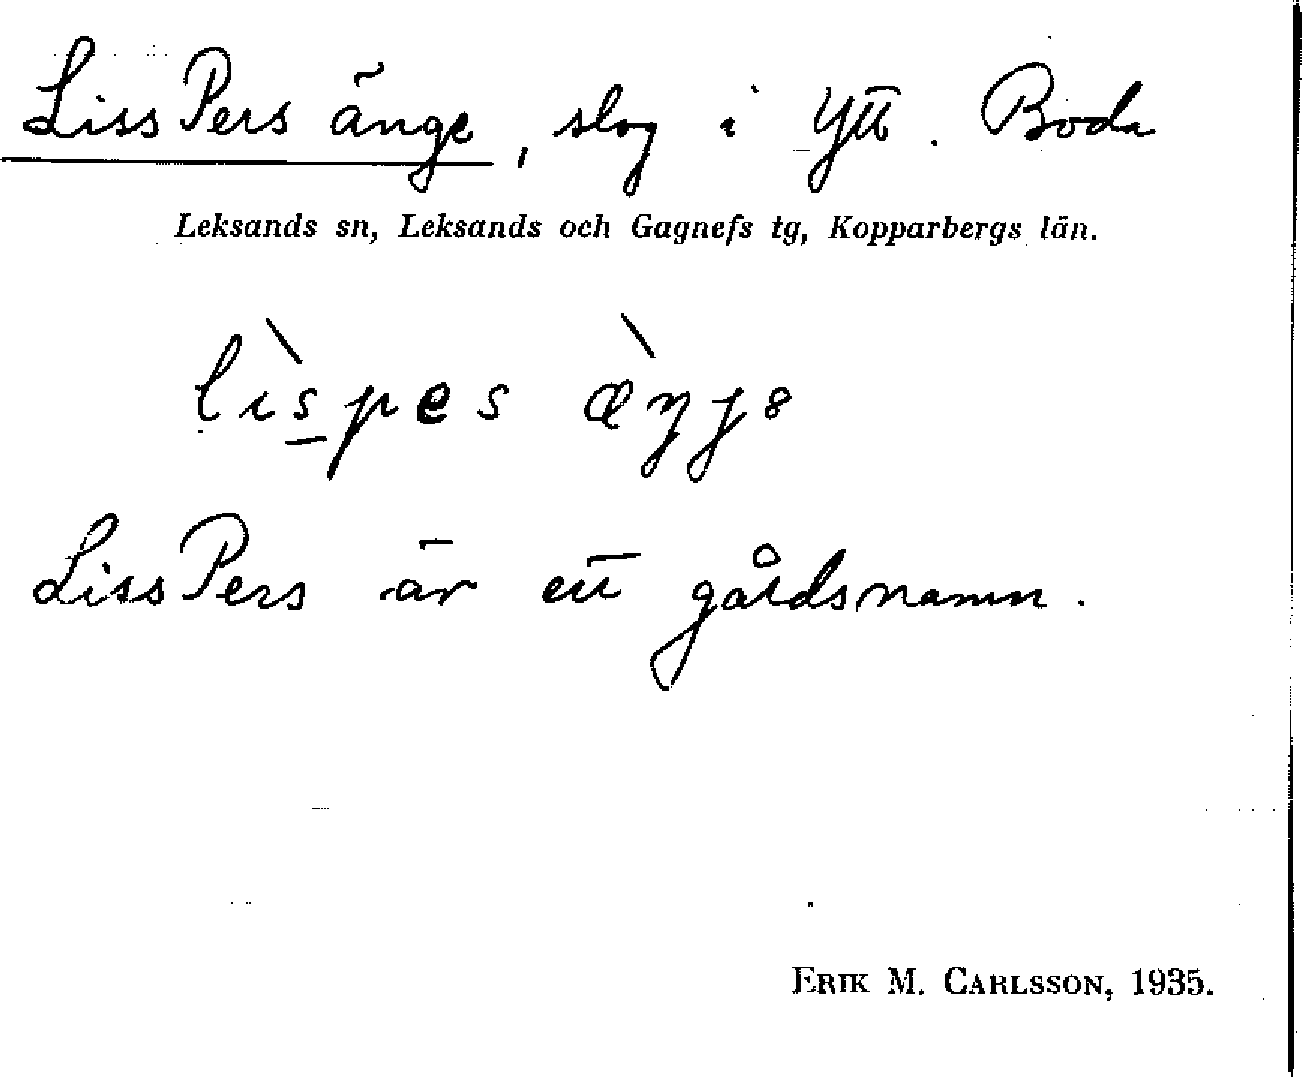 Liss Pers änge, slog i Ytt. Boda
Leksands sn, Leksands och Gagnefs tg, Kopparbergs län.
lìs̲pes
Liss Pers är ett gårdsnamn.
ERIK M. CARLSSON, 1935.